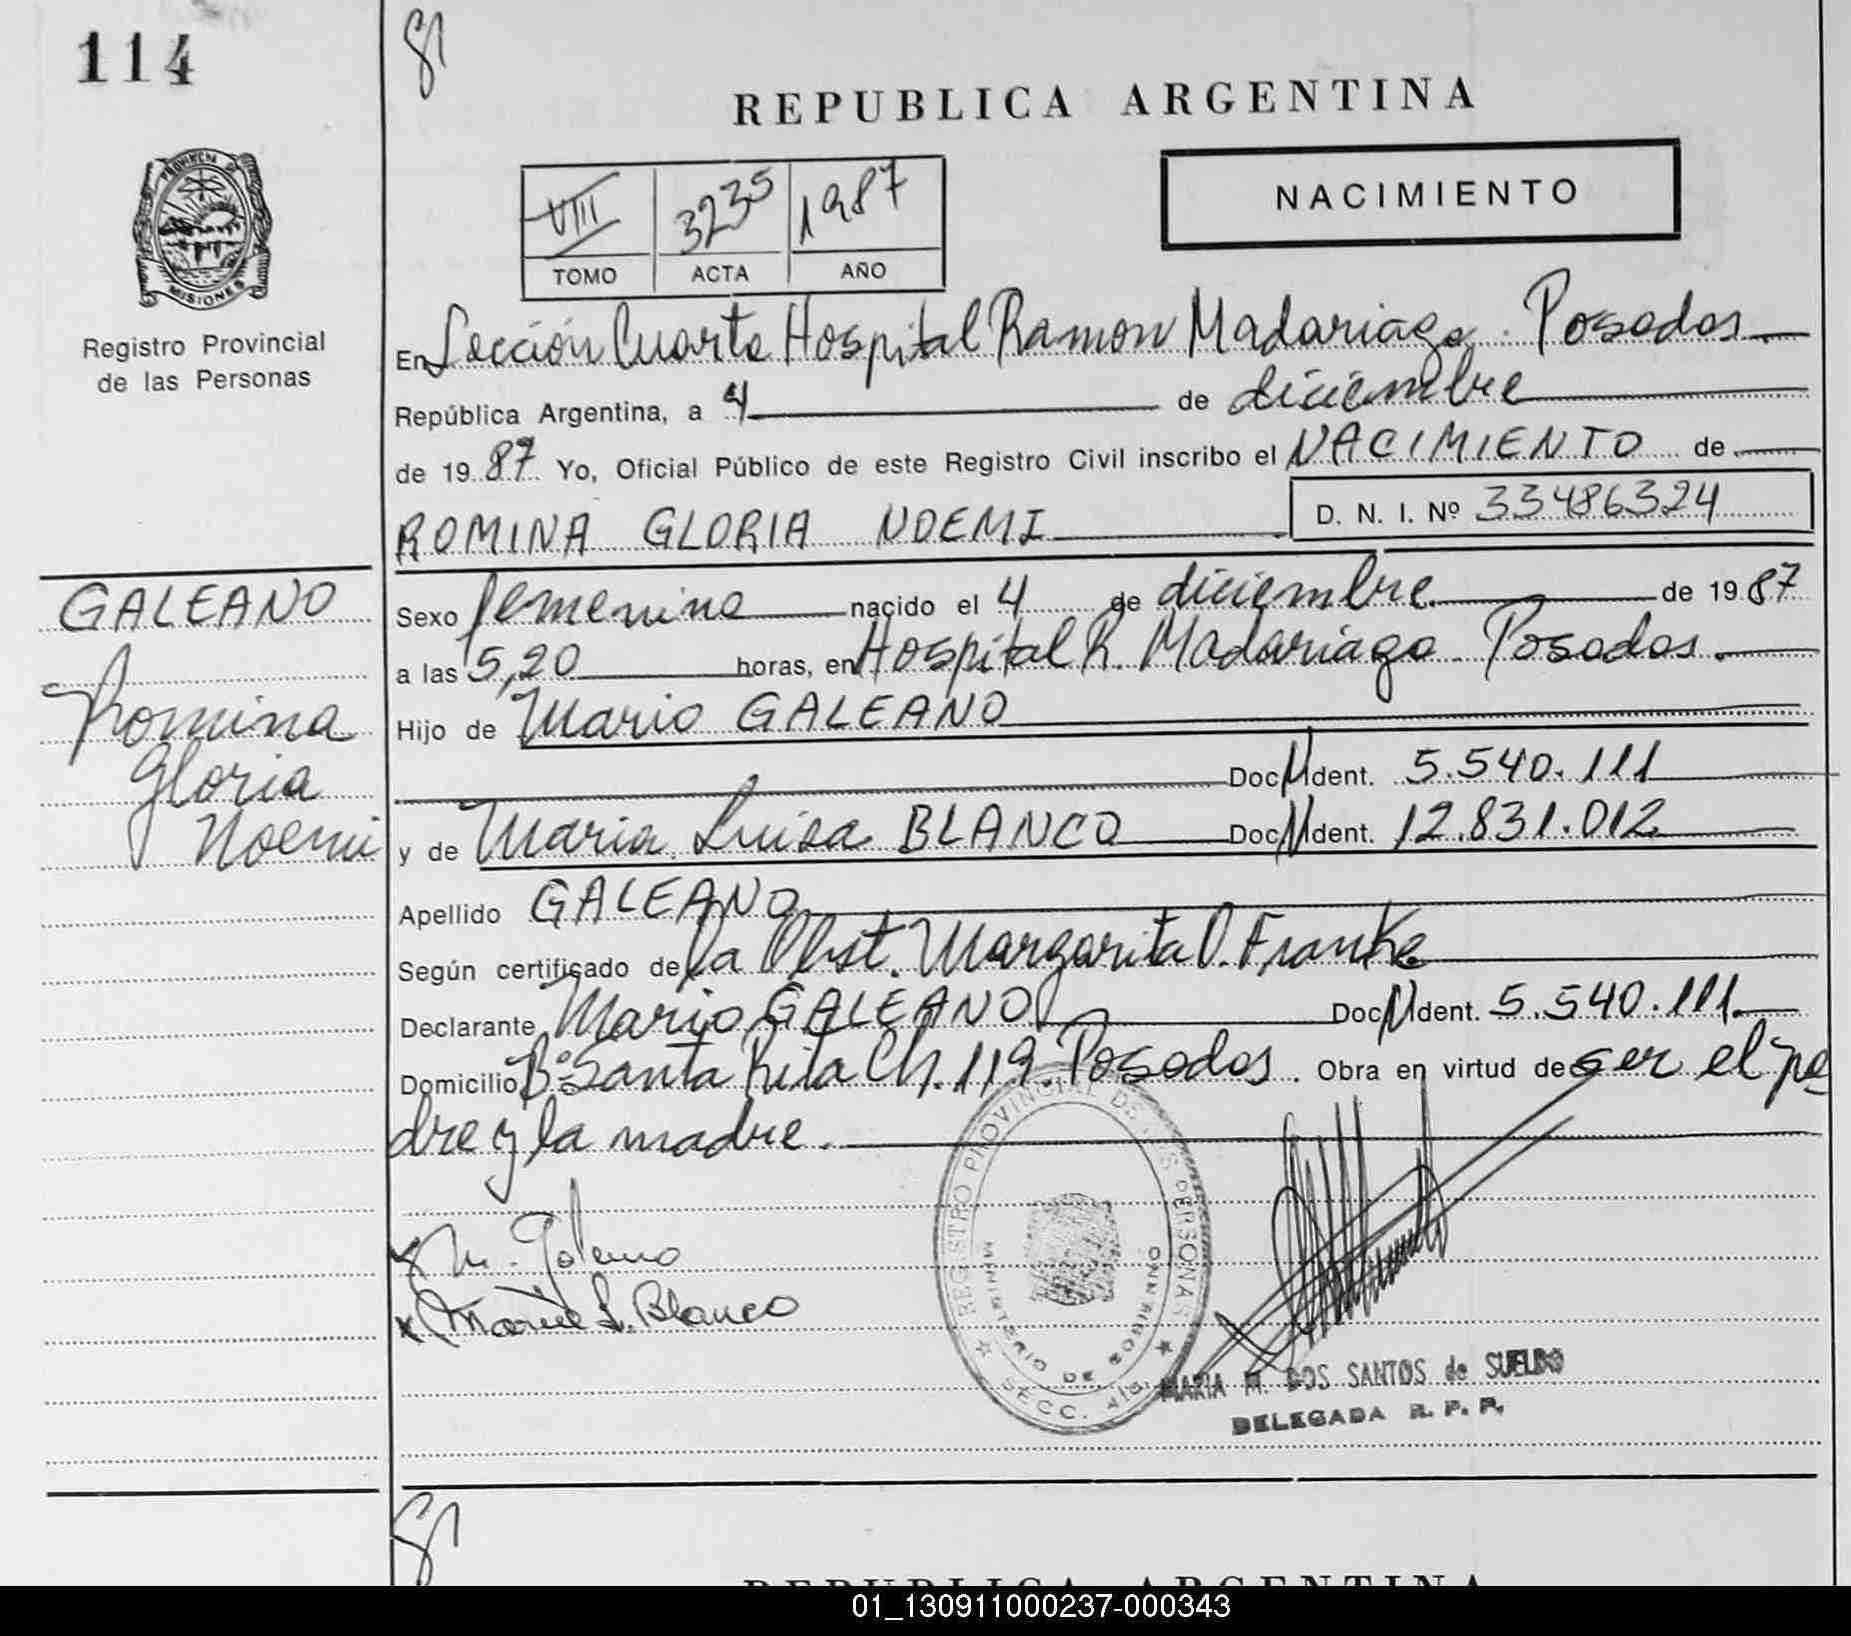 114
REPUBLICA ARGENTINA
VIII 3235 1987
TOMO ACTA AÑO
NACIMIENTO
PROVINCIA DE MISIONES
Registro Provincial
de las Personas
En Sección Cuarta Hospital Ramon Madariaga. Posadas
República Argentina, a 4 de diciembre
de 1987. Yo, Oficial Público de este Registro Civil inscribo el NACIMIENTO de
ROMINA GLORIA NOEMI D. N. I. Nº 33486324
GALEANO
Romina
Gloria
Noemi
Sexo femenino nacido el 4 de diciembre de 1987
a las 5,20 horas, en Hospital R. Madariaga. Posadas.
Hijo de Mario GALEANO
Doc. Ident. 5.540.111
y de Maria Luisa BLANCO Doc. Ident. 12.831.012
Apellido GALEANO
Según certificado de la Obst. Margarita O. Franke
Declarante Mario GALEANO Doc. Ident. 5.540.111.
Domicilio Bº Santa Rita Ch. 119. Posadas. Obra en virtud de ser el pa
dre y la madre.
x M. Galeano
x Maria L. Blanco
REGISTRO PROVINCIAL DE LAS PERSONAS
MINISTERIO DE GOBIERNO
SECC. 4ta.
MARIA M. DOS SANTOS de SUELDO
DELEGADA R. P. P.
REPUBLICA ARGENTINA
01_130911000237-000343